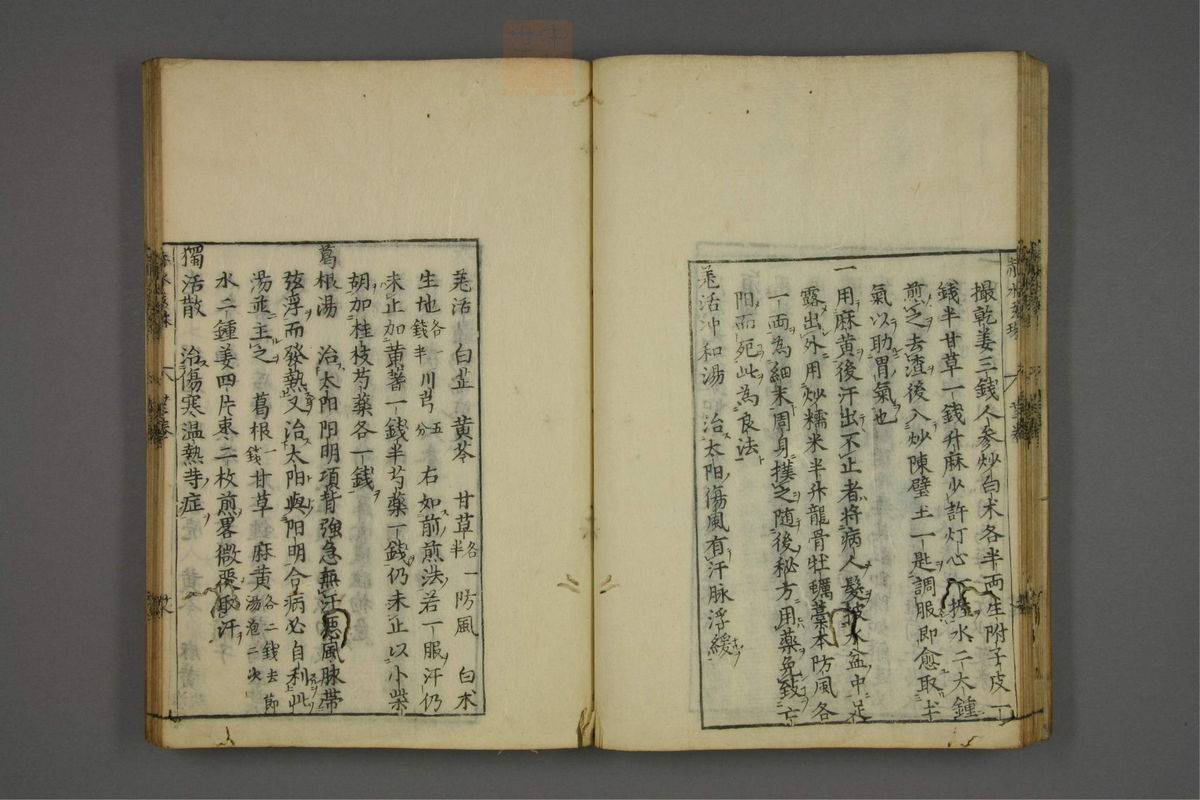 撮乾姜三錢人参炒白术各半両生附子皮一
錢半甘草一錢升麻少許灯心一撮水二大鍾
煎之去渣後入炒陳壁土一匙調服即愈取土
氣以助胃氣也
一用麻黄後汗出不止者将病人髮披水盆中足
露出外用炒糯米半升龍骨牡蠣藁本防風各
一両為細末周身撲之随後秘方用藥免致亡
阳而死此為良法
羌活冲和湯 治太阳傷風有汗脉浮緩
羌活 白芷 黄芩 甘草各一錢半 防風 白术
生地各一錢半 川芎五分 右如前煎法若一服汗仍
未止加黄蓍一錢半芍藥一錢仍未止以小柴
胡加桂枝芍藥各一錢
葛根湯 治太阳阳明項背強急無汗悪風脉帯
弦浮而發熱又治太阳與阳明合病必自利此
湯並主之 葛根一錢 甘草 麻黄各二錢去節湯泡二次
水二鍾姜四片枣二枚煎畧微聚取汗
獨活散 治傷寒温熱等症